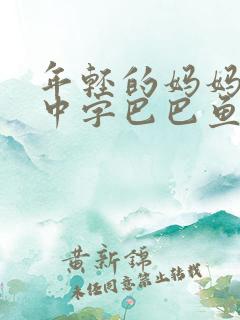 年轻的妈妈
中字巴巴鱼
黄新锦
未经同意禁止转载